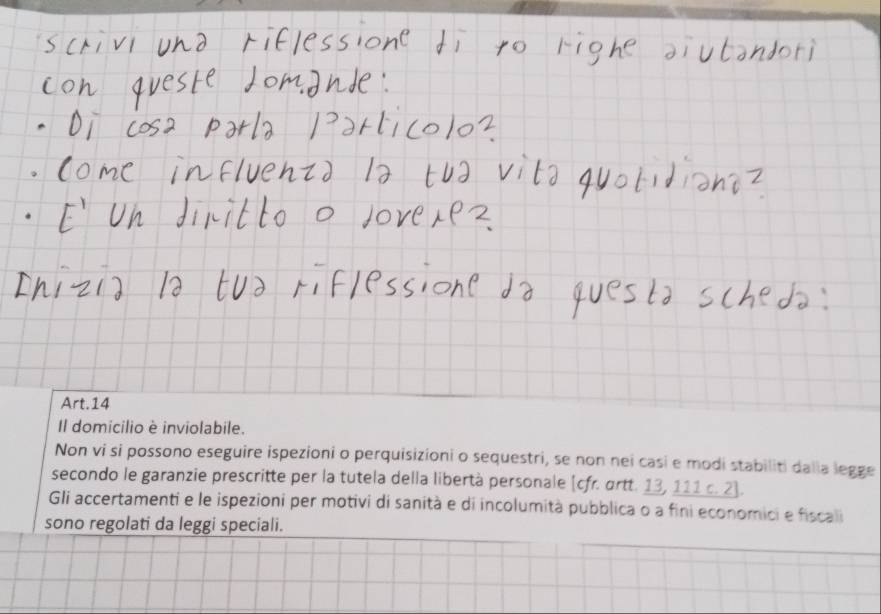 scrivi una riflessione di 10 righe aiutandoti
con queste domande:
• Di cosa parla l'articolo?
• Come influenza la tua vita quotidiana?
• E' un diritto o dovere?
Inizia la tua riflessione da questa scheda:
Art.14
Il domicilio è inviolabile.
Non vi si possono eseguire ispezioni o perquisizioni o sequestri, se non nei casi e modi stabiliti dalla legge
secondo le garanzie prescritte per la tutela della libertà personale [cfr. artt. 13, 111 c. 2].
Gli accertamenti e le ispezioni per motivi di sanità e di incolumità pubblica o a fini economici e fiscali
sono regolati da leggi speciali.